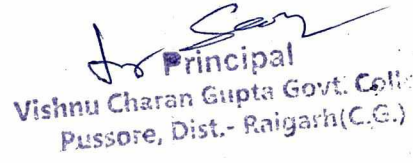 Principal
Vishnu Charan Gupta Govt. Coll
Pussore, Dist.- Raigarh(C.G.)